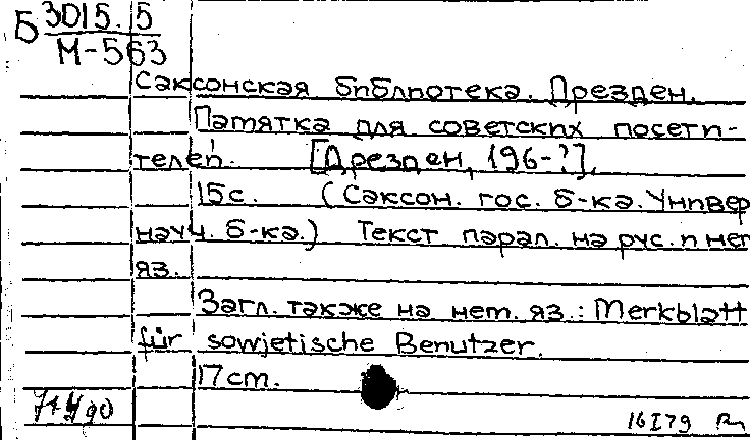 Б 3015.5
М-563
Саксонская библиотека. Дрезден.
Памятка для советских посети-
телей. [Дрезден, 196-?].
15с. (Саксон. гос. б-ка. Универ
науч. б-ка.) Текст парал. на рус. и нем
яз.
Загл. также на нем. яз.: Merkblatt
für sowjetische Benutzer.
17cm.
16 I 79